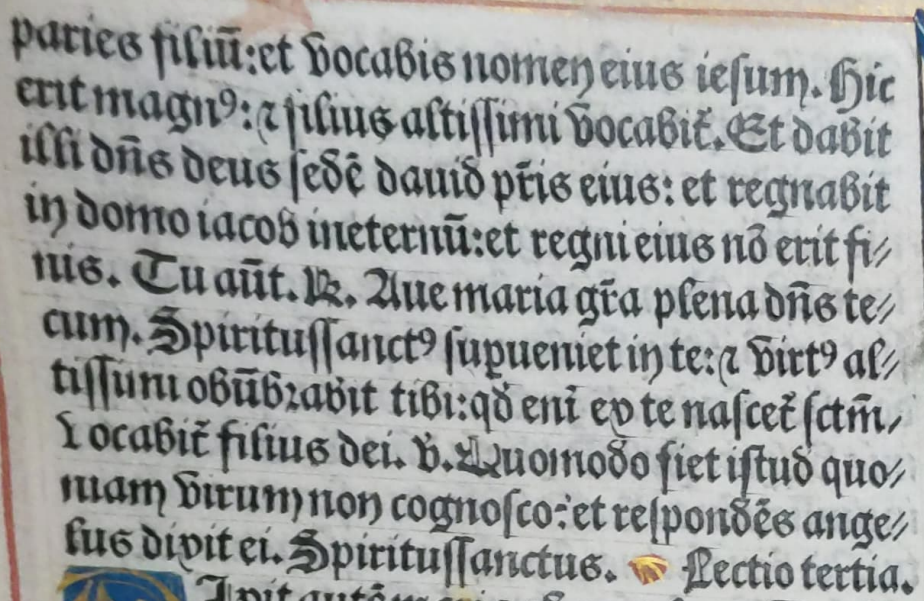 paries filiū:et vocabis nomen eius iesum. Hic
erit magnꝰ: ⁊ filius altissimi vocabit᷑. Et dabit
illi dn̄s deus sedē dauid pr̄is eius: et regnabit
in domo iacob ineternū:et regni eius nō erit fi⸗
nis. Tu aūt. ℞. Aue maria gr̄a plena dn̄s te⸗
cum. Spiritussanctꝰ supueniet in te: ⁊ virtꝰ al⸗
tissimi obūbrabit tibi:qd̄ eni ex te nascet᷑ sctm̄,
vocabit᷑ filius dei. v. Quomodo fiet istud quo⸗
niam virum non cognosco:et respondēs ange⸗
lus dixit ei. Spiritussanctus. Lectio tertia.